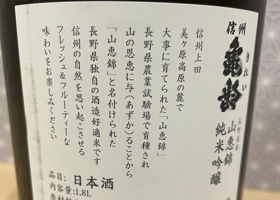 信州
亀齢
きれい
山恵錦
純米吟醸
信州上田
美ヶ原高原の麓で
大事に育てられた「山恵錦」
長野県農業試験場で育種され
山の恩恵に与(あずか)ることから
「山恵錦」と名付けられた
長野県独自の酒造好適米です
信州の自然を思い起こさせる
フレッシュ&フルーティーな
味わいをお楽しみください
品目:日本酒
内容量:1.8L